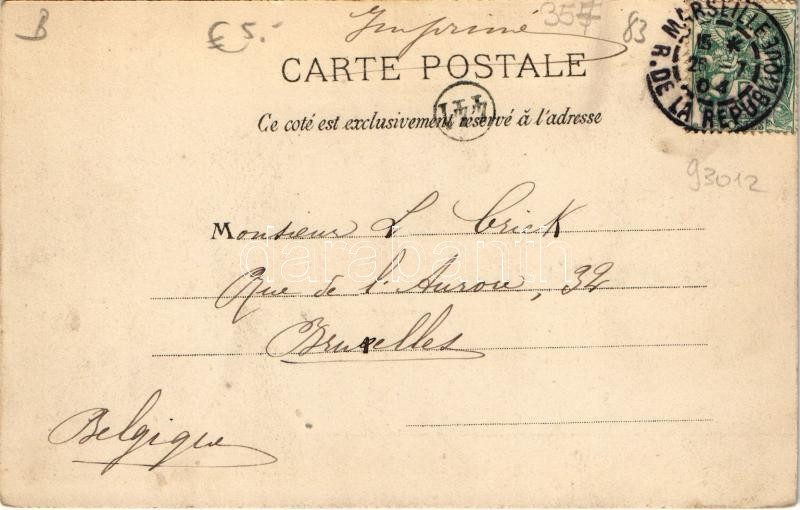 B
£ 5.-
Imprimé
357
83
CARTE POSTALE
Ce coté est exclusivement réservé à l'adresse
MARSEILLE
15 *
04
R. DE LA REPUBLIQUE
93012
Monsieur L Crick
databanth
Rue de l'Aurore, 32
Bruxelles
Belgique